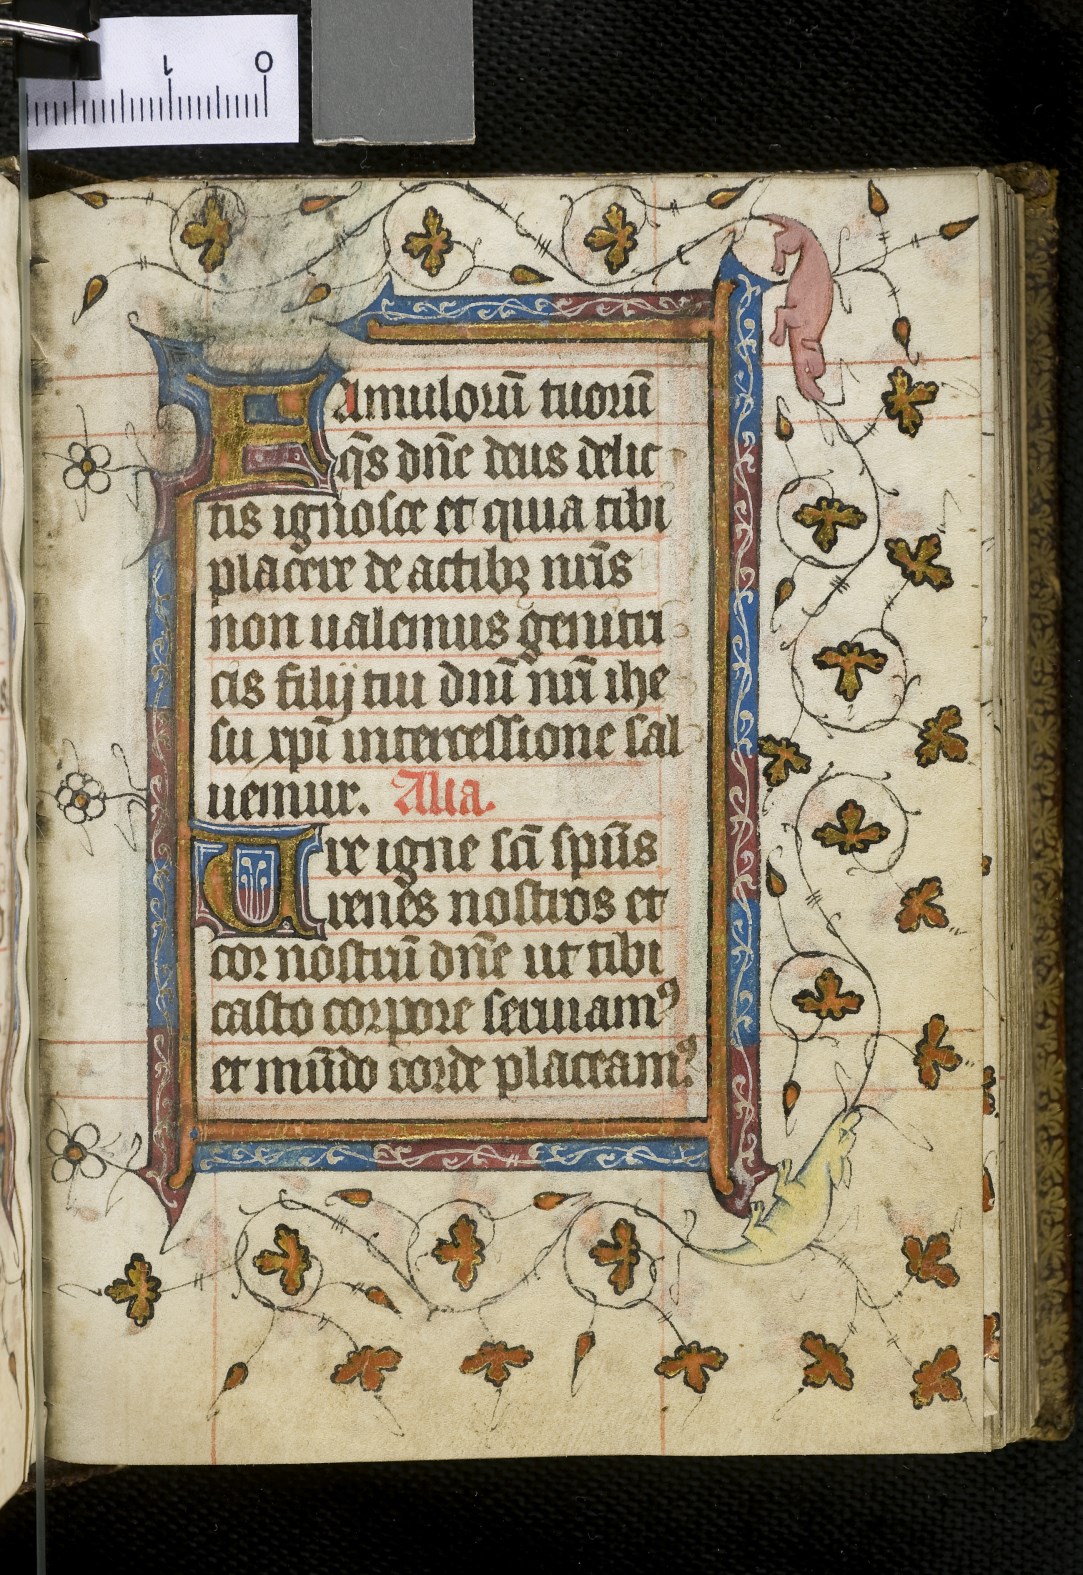 1 0
Famulorū tuorū
q̄s dn̄e deus delic
tis ignosce et quia tibi
placere de actibꝫ nr̄is
non ualemus genitri
cis filij tui dn̄ū nr̄i ihe
su xp̄i intercessione sal
uemur. Alia.
Ure igne sc̄i sp̄us
renes nostros et
cor nostrū dn̄e ut tibi
casto corpore seruiamꝰ
et mūdo corde placeamꝰ.